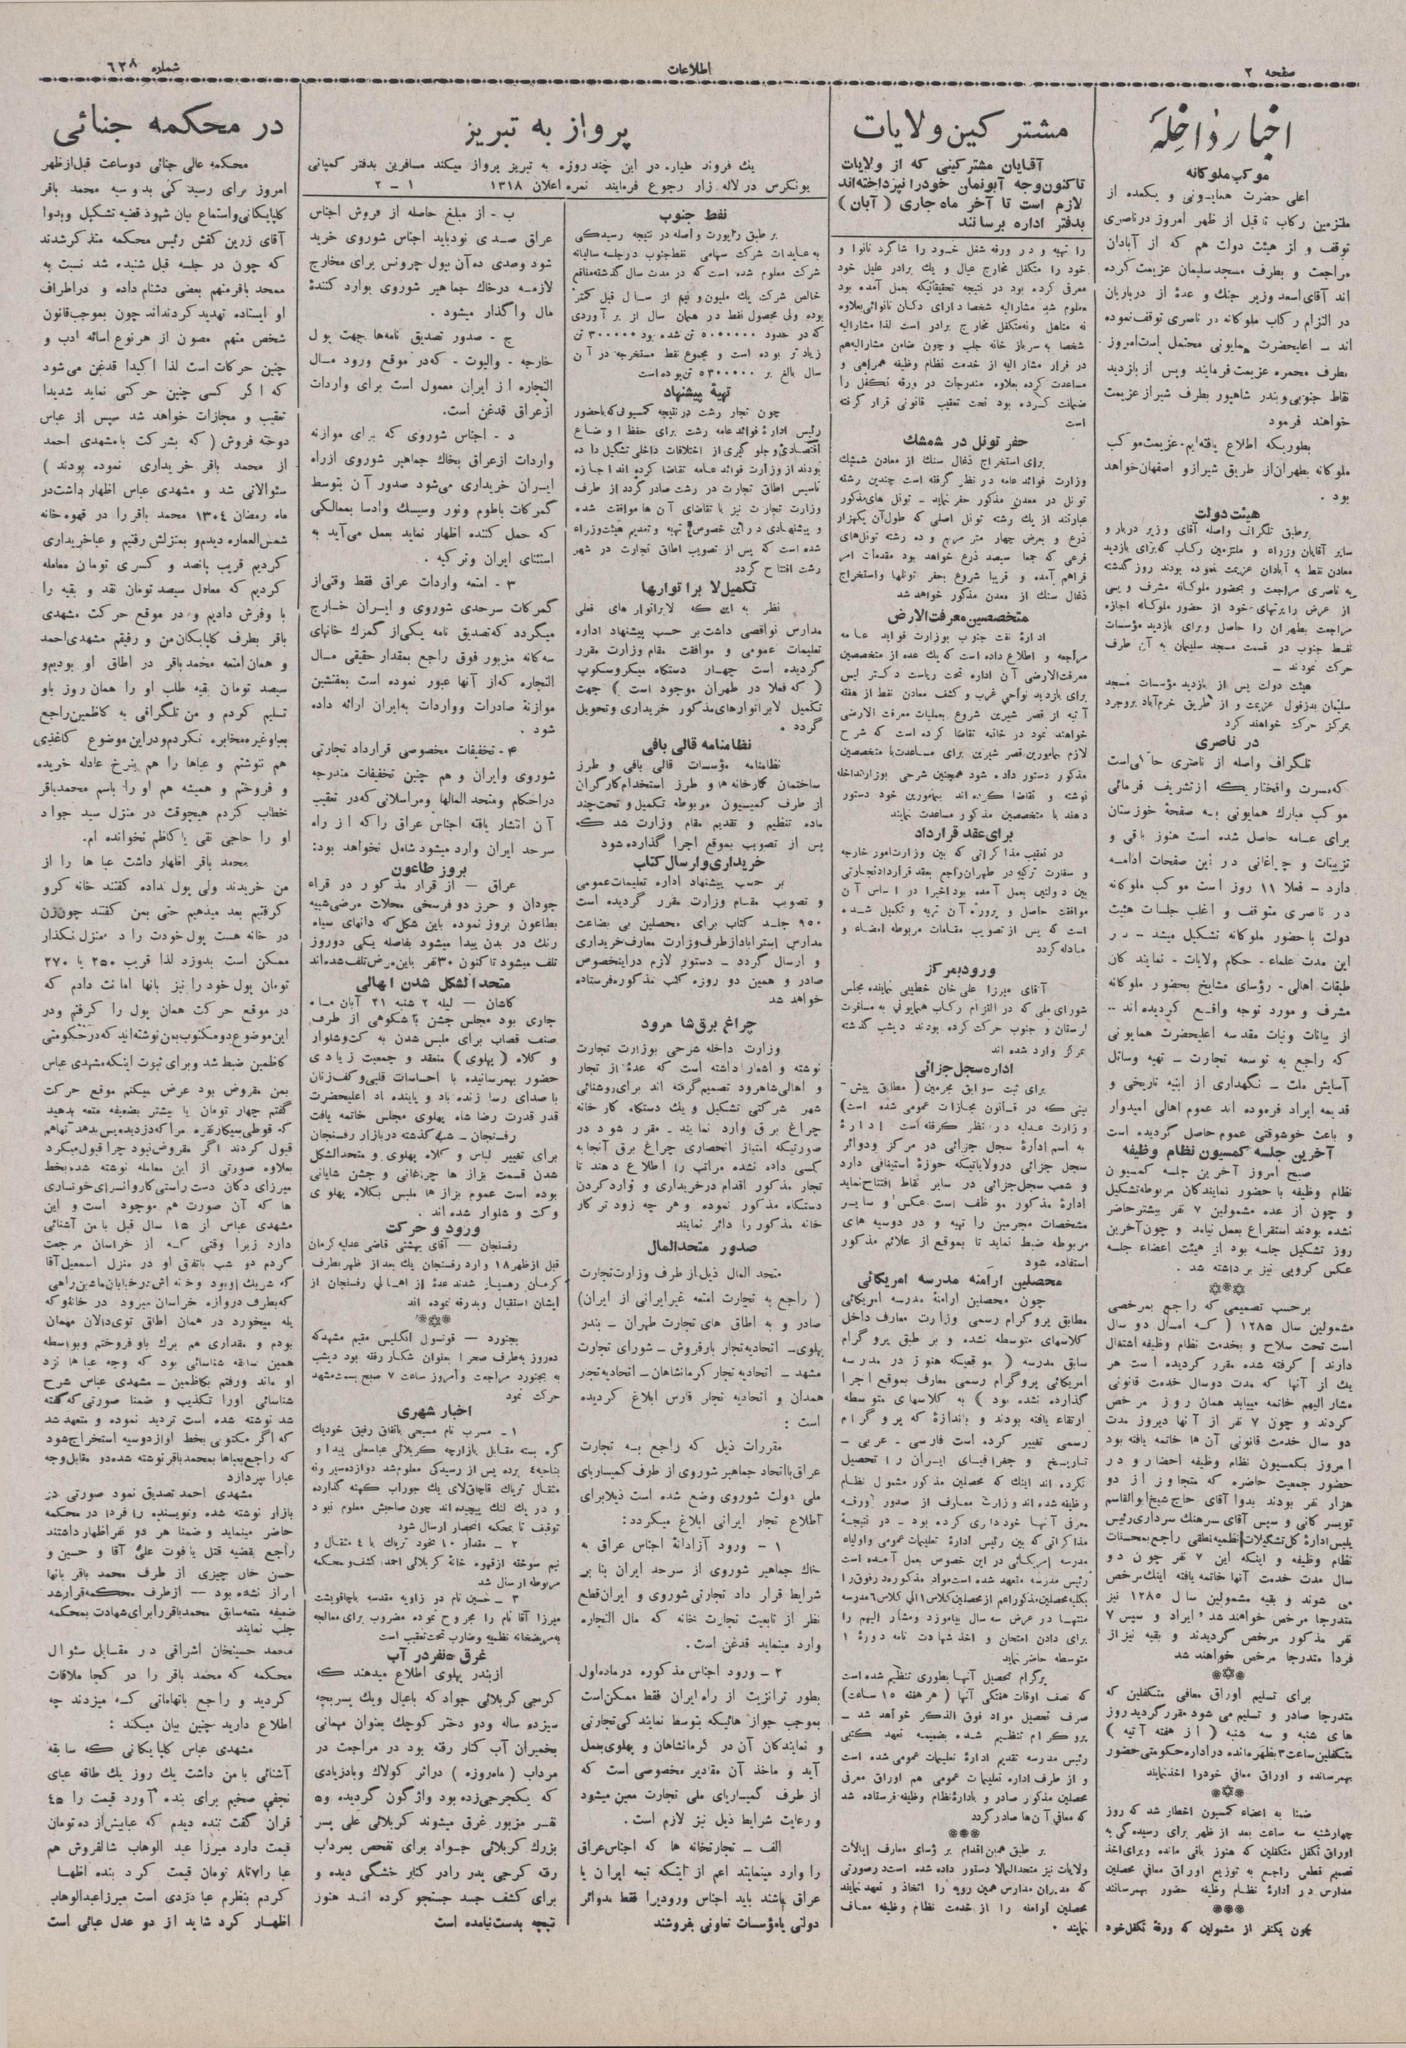 صفحه ۲
اطلاعات
شماره ۶۳۸
اخبار داخله
موکب ملوکانه
اعلی حضرت همایونی و یکعده از
ملتزمین رکاب تا قبل از ظهر امروز در ناصری
توقف و از هیئت دولت هم که از آبادان
مراجعت و بطرف مسجد سلیمان عزیمت کرده
اند آقای اسعد وزیر جنك و عدهٔ از درباریان
در التزام رکاب ملوکانه در ناصری توقف نموده
اند – اعلیحضرت همایونی محتمل است امروز
بطرف محمره عزیمت فرمایند وپس از بازدید
نقاط جنوبی وبندر شاهپور بطرف شیراز عزیمت
خواهند فرمود
بطوریکه اطلاع یافته ایم عزیمت موکب
ملوکانه بطهران از طریق شیراز و اصفهان خواهد
بود .
هیئت دولت
برطبق تلگراف واصله آقای وزیر دربار و
سایر آقایان وزراء و ملتزمین رکاب که برای بازدید
معادن نفط به آبادان عزیمت نموده بودند روز گذشته
به ناصری مراجعت و بحضور ملوکانه مشرف و پس
از عرض راپرتهای خود از حضور ملوکانه اجازه
مراجعت بطهران را حاصل وبرای بازدید مؤسسات
نفط جنوب در قسمت مسجد سلیمان به آن طرف
حرکت نمودند –
هیئت دولت پس از بازدید مؤسسات مسجد
سلیمان بدزفول عزیمت و از طریق خرم آباد بروجرد
بمرکز حرکت خواهند کرد
در ناصری
تلگراف واصله از ناصری حاکی است
که مسرت وافتخاریکه از تشریف فرمائی
موکب مبارك همایونی به صفحهٔ خوزستان
برای عامه حاصل شده است هنوز باقی و
تزیینات و چراغانی در این صفحات ادامه
دارد – فعلا ۱۱ روز است موکب ملوکانه
در ناصری متوقف و اغلب جلسات هیئت
دولت با حضور ملوکانه تشکیل میشد – در
این مدت علماء – حکام ولایات – نمایند گان
طبقات اهالی – رؤسای مشایخ بحضور ملوکانه
مشرف و مورد توجه واقع گردیده اند –
از بیانات ونیات مقدسه اعلیحضرت همایونی
که راجع به توسعه تجارت – تهیه وسائل
آسایش ملت – نگهداری از ابنیه تاریخی و
قدیمه ایراد فرموده اند عموم اهالی امیدوار
و باعث خوشوقتی عموم حاصل گردیده است
آخرین جلسه کمسیون نظام وظیفه
صبح امروز آخرین جلسه کمسیون
نظام وظیفه با حضور نمایندگان مربوطه تشکیل
و چون از عده مشمولین ۷ نفر بیشتر حاضر
نشده بودند استقراع بعمل نیامد و چون آخرین
روز تشکیل جلسه بود از هیئت اعضاء جلسه
عکس گروپی نیز برداشته شد .
برحسب تصمیمی که راجع بمرخصی
مشمولین سال ۱۲۸۵ ( که امسال دو سال
است تحت سلاح و بخدمت نظام وظیفه اشتغال
دارند ] گرفته شده مقرر گردیده است هر
یك از آنها که مدت دوسال خدمت قانونی
مشار الیهم خاتمه مییابد همان روز مرخص
گردند و چون ۷ نفر از آنها دیروز مدت
دو سال خدمت قانونی آن ها خاتمه یافته بود
امروز بکمسیون نظام وظیفه احضار و در
حضور جمعیت حاضره که متجاوز از دو
هزار نفر بودند بدوا آقای حاج شیخ ابوالقاسم
تویسرکانی و سپس آقای سرهنك سرداری رئیس
پلیس ادارهٔ کل تشکیلات نظمیه نطقی راجع بمحسنات
نظام وظیفه و اینکه این ۷ نفر چون دو
سال مدت خدمت آنها خاتمه یافته اینك مرخص
می شوند و بقیه مشمولین سال ۱۲۸۵ نیز
متدرجا مرخص خواهند شد ایراد و سپس ۷
نفر مذکور مرخص گردیدند و بقیه نیز از
فردا متدرجا مرخص خواهند شد
برای تسلیم اوراق معافی متکفلین که
متدرجا صادر و تسلیم می شود مقرر گردید روز
های شنبه و سه شنبه ( از هفته آتیه )
متکفلین ساعت ۳ بظهر مانده در اداره حکومتی حضور
بهمرسانده و اوراق معافی خودرا اخذ نمایند
ضمنا به اعضاء کمسیون اخطار شد که روز
چهارشنبه سه ساعت بعد از ظهر برای رسیدگی به
اوراق تکفل متکفلین که هنوز باقی مانده وبرای اخذ
تصمیم قطعی راجع به توزیع اوراق معافی محصلین
مدارس در ادارهٔ نظام وظیفه حضور بهمرسانند
چون یکنفر از مشمولین که ورقهٔ تکفل خود
مشترکین ولایات
آقایان مشترکینی که از ولایات
تاکنون وجه آبونمان خودرا نپرداخته اند
لازم است تا آخر ماه جاری ( آبان )
بدفتر اداره برسانند
را تهیه و در ورقه شغل خود را شاگرد نانوا و
خود را متکفل مخارج عیال و یك برادر علیل خود
معرفی کرده بود در نتیجه تحقیقاتیکه بعمل آمده بود
معلوم شد مشارالیه شخصا دارای دکان نانوائی بعلاوه
نه متاهل ونه متکفل مخارج برادر است لذا مشارالیه
شخصا به سرباز خانه جلب و چون ضامن مشارالیهم
در فرار مشار الیه از خدمت نظام وظیفه همراهی و
مساعدت کرده بعلاوه مندرجات در ورقه تکفل را
ضمانت کرده بود تحت تعقیب قانونی قرار گرفته
است
حفر تونل در شمشك
برای استخراج ذغال سنك از معادن شمشك
وزارت فوائد عامه در نظر گرفته است چندین رشته
تونل در معدن مذکور حفر نماید – تونل های مذکور
عبارتند از یك رشته تونل اصلی که طول آن یکهزار
ذرع و بعرض چهار متر مربع و ده رشته تونل های
فرعی که جمعا سیصد ذرع خواهد بود مقدمات امر
فراهم آمده و قریبا شروع بحفر تونلها واستخراج
ذغال سنك از معدن مذکور خواهد شد
متخصصین معرفت الارض
ادارهٔ نفت جنوب بوزارت فواید عامه
مراجعه و اطلاع داده است که یك عده از متخصصین
معرفت الارضی آن اداره تحت ریاست دکتر لیس
برای بازدید نواحی غرب و کشف معادن نفط از هفته
آتیه از قصر شیرین شروع بعملیات معرفت الارضی
خواهند نمود در خاتمه تقاضا کرده است که شرح
لازم بمامورین قصر شیرین برای مساعدت با متخصصین
مذکور دستور داده شود همچنین شرحی بوزارتداخله
نوشته و تقاضا کرده اند بمامورین خود دستور
دهند با متخصصین مذکور مساعدت نمایند
برای عقد قرارداد
در تعقیب مذاکراتی که بین وزارت امور خارجه
و سفارت ترکیه در طهران راجع بعقد قرارداد تجارتی
بین دولتین بعمل آمده بود اخیرا در اساس آن
موافقت حاصل و پروژه آن تهیه و تکمیل شده
است که پس از تصویب مقامات مربوطه امضاء و
مبادله گردد
ورود بمرکز
آقای میرزا علی خان خطیبی نماینده مجلس
شورای ملی که در التزام رکاب همایونی به مسافرت
لرستان و جنوب حرکت کرده بودند دیشب گذشته
بمرکز وارد شده اند
اداره سجل جزائی
برای ثبت سوابق مجرمین ( مطابق پیش-
بینی که در قانون مجازات عمومی شده است)
وزارت عدلیه در نظر گرفته است ادارهٔ
به اسم ادارهٔ سجل جزائی در مرکز ودوائر
سجل جزائی درولایاتیکه حوزهٔ استینافی دارد
و شعب سجل جزائی در سایر نقاط افتتاح نماید
ادارهٔ مذکور موظف است عکس و سایر
مشخصات مجرمین را تهیه و در دوسیه های
مربوطه ضبط نماید تا بموقع از علائم مذکور
استفاده شود
محصلین ارامنه مدرسه امریکائی
چون محصلین ارامنهٔ مدرسه امریکائی
مطابق پروگرام رسمی وزارت معارف داخل
کلاسهای متوسطه نشده و بر طبق پروگرام
سابق مدرسه ( موقعیکه هنوز در مدرسه
امریکائی پروگرام رسمی معارف بموقع اجرا
گذارده نشده بود ) به کلاسهای متوسطه
ارتقاء یافته بودند و باندازهٔ که پروگرام
رسمی تغییر کرده است فارسی – عربی –
تاریخ و جغرافیای ایران را تحصیل
نکرده اند اینك که محصلین مذکور مشمول نظام
وظیفه شده اند وزارت معارف از صدور ورقه
معرفی آنها خودداری کرده بود – در نتیجهٔ
مذاکراتی که بین ادارهٔ تعلیمات عمومی واولیاء
مدرسه امریکائی در این خصوص بعمل آمده است
رئیس مدرسه متعهد شده است مواد مذکوره در فوق را
بکلیه محصلین مذکور اعم از محصلین کلاس ۱ الی کلاس ۶ مدرسه
منتها در عرض سه سال بیاموزد ومشار الیهم را
برای دادن امتحان و اخذ شهادت نامه دورهٔ ۱
متوسطه حاضر نماید
پرگرام تحصیل آنها بطوری تنظیم شده است
که نصف اوقات هفتگی آنها ( هر هفته ۱۵ ساعت)
صرف تحصیل مواد فوق الذکر خواهد شد –
پروگرام تنظیم شده بضمیمه تعهد کتبی
رئیس مدرسه تقدیم ادارهٔ تعلیمات عمومی شده است
و از طرف اداره تعلیمات عمومی هم اوراق معرفی
محصلین مذکور صادر و باداره نظام وظیفه فرستاده شد
که معافی آن ها صادر گردد
بر طبق همین اقدام بر ؤسای معارف ایالات
ولایات نیز متحدالمالا دستور داده شده است درصورتی
که مدیران مدارس همین رویه را اتخاذ و تعهد نمایند
محصلین ارامنه را از خدمت نظام وظیفه معاف
نمایند .
پرواز به تبریز
یك فروند طیاره در این چند روزه به تبریز پرواز میکند مسافرین بدفتر کمپانی
یونکرس در لاله زار رجوع فرمایند نمره اعلان ۱۳۱۸ ۱ – ۲
نفط جنوب
برطبق راپورت واصله در نتیجه رسیدگی
به عایدات شرکت سهامی نفط جنوب در جلسه سالیانه
شرکت معلوم شده است که در مدت سال گذشته منافع
خالص شرکت یك ملیون و نیم از سال قبل کمتر
بوده ولی محصول نفط در همان سال از بر آوردی
که در حدود ۵۰۰۰۰۰۰ تن شده بود ۳۰۰۰۰۰ تن
زیادتر بوده است و مجموع نفط مستخرجه در آن
سال بالغ بر ۵۳۰۰۰۰۰ تن بوده است
تهیهٔ پیشنهاد
چون تجار رشت در نتیجه کمسیونی که با حضور
رئیس ادارهٔ فوائد عامه رشت برای حفظ اوضاع
اقتصادی و جلوگیری از اختلافات داخلی تشکیل داده
بودند از وزارت فوائد عامه تقاضا کرده اند اجازه
تاسیس اطاق تجارت در رشت صادر گردد از طرف
وزارت تجارت نیز با تقاضای آن ها موافقت شده
و پیشنهادی در این خصوص تهیه وتقدیم هیئت وزراء
شده است که پس از تصویب اطاق تجارت در شهر
رشت افتتاح گردد
تکمیل لابراتوارها
نظر به این که لابراتوار های فعلی
مدارس نواقصی داشت بر حسب پیشنهاد اداره
تعلیمات عمومی و موافقت مقام وزارت مقرر
گردیده است چهار دستگاه میکروسکوپ
( که فعلا در طهران موجود است ) جهت
تکمیل لابراتوارهای مذکور خریداری و تحویل
گردد .
نظامنامه قالی بافی
نظامنامه مؤسسات قالی بافی و طرز
ساختمان کارخانه ها و طرز استخدام کارگران
از طرف کمیسیون مربوطه تکمیل و تحت چند
ماده تنظیم و تقدیم مقام وزارت شد که
پس از تصویب بموقع اجرا گذارده شود
خریداری وارسال کتاب
بر حسب پیشنهاد اداره تعلیمات عمومی
و تصویب مقام وزارت مقرر گردیده است
۹۵۰ جلد کتاب برای محصلین بی بضاعت
مدارس استرآباد از طرف وزارت معارف خریداری
و ارسال گردد – دستور لازم در اینخصوص
صادر و همین دو روزه کتب مذکوره فرستاده
خواهد شد
چراغ برق شاهرود
وزارت داخله شرحی بوزارت تجارت
نوشته و اشعار داشته است که عدهٔ از تجار
و اهالی شاهرود تصمیم گرفته اند برای روشنائی
شهر شرکتی تشکیل و یك دستگاه کارخانه
چراغ برق وارد نمایند . مقرر شود در
صورتیکه امتیاز انحصاری چراغ برق آنجا به
کسی داده نشده مراتب را اطلاع دهند تا
تجار مذکور اقدام در خریداری و وارد کردن
دستگاه مذکور نموده و هر چه زود تر کار
خانه مذکور را دائر نمایند
صدور متحدالمال
متحد المال ذیل از طرف وزارت تجارت
( راجع به تجارت امتعه غیر ایرانی از ایران )
صادر و به اطاق های تجارت طهران – بندر
پهلوی – اتحادیه تجار بارفروش – شورای تجارت
مشهد – اتحادیه تجار کرمانشاهان – اتحادیه تجار
همدان و اتحادیه تجار فارس ابلاغ گردیده
است :
مقررات ذیل که راجع به تجارت
عراق با اتحاد جماهیر شوروی از طرف کمیساریای
ملی دولت شوروی وضع شده است ذیلا برای
اطلاع تجار ایرانی ابلاغ میگردد:
۱ – ورود آزادانهٔ اجناس عراق به
خاك جماهیر شوروی از سرحد ایران بنا بر
شرایط قرار داد تجارتی شوروی و ایران قطع
نظر از تابعیت تجارت خانه که مال التجاره
وارد مینماید قدغن است .
۲ – ورود اجناس مذکوره در ماده اول
بطور ترانزیت از راه ایران فقط ممکن است
بموجب جواز هائیکه بتوسط نمایندگی تجارتی
و نمایندگان آن در کرمانشاهان و پهلوی بعمل
آید و ماخذ آن مقادیر مخصوصی است که
از طرف کمیساریای ملی تجارت معین میشود
و رعایت شرایط ذیل نیز لازم است .
الف – تجارتخانه ها که اجناس عراق
را وارد مینمایند اعم از اینکه تبعه ایران یا
عراق باشند باید اجناس ورودیرا فقط بدوائر
دولتی یا مؤسسات تعاونی بفروشند
ب - از مبلغ حاصله از فروش اجناس
عراق صدی نودباید اجناس شوروی خرید
شود وصدی ده آن بپول چرونس برای مخارج
لازمه در خاك جماهیر شوروی بوارد کنندهٔ
مال واگذار میشود .
ج - صدور تصدیق نامه ها جهت پول
خارجه – والیوت – که در موقع ورود مال
التجاره از ایران معمول است برای واردات
از عراق قدغن است.
د - اجناس شوروی که برای موازنه
واردات از عراق بخاك جماهیر شوروی از راه
ایران خریداری می شود صدور آن بتوسط
گمرکات باطوم ونور وسیسك وادسا بممالکی
که حمل کننده اظهار نماید بعمل می آید به
استثنای ایران وترکیه .
۳ - امتعه واردات عراق فقط وقتی از
گمرکات سرحدی شوروی و ایران خارج
میگردد که تصدیق نامه یکی از گمرك خانهای
سه گانه مزبور فوق راجع بمقدار حقیقی مال
التجاره که از آنها عبور نموده است بمفتشین
موازنهٔ صادرات وواردات به ایران ارائه داده
شود .
۴ - تخفیفات مخصوصی قرارداد تجارتی
شوروی وایران و هم چنین تخفیفات مندرجه
در احکام ومتحد المالها ومراسلاتی که در تعقیب
آن انتشار یافته اجناس عراق را که از راه
سرحد ایران وارد میشود شامل نخواهد بود:
بروز طاعون
عراق – از قرار مذکور در قراء
چودان و حرز دو فرسخی محلات مرضی شبیه
بطاعون بروز نموده باین شکل که دانهای سیاه
رنك در بدن پیدا میشود بفاصله یکی دوروز
تلف میشود تاکنون ۳۰ نفر باین مرض تلف شده اند
متحدالشکل شدن اهالی
کاشان – لیله ۲ شنبه ۲۱ آبان ماه
جاری بود مجلس جشن با شکوهی از طرف
صنف قصاب برای ملبس شدن به کت وشلوار
و کلاه ( پهلوی ) منعقد و جمعیت زیادی
حضور بهمرسانیده با احساسات قلبی و کف زنان
با صدای رسا زنده باد و پاینده باد اعلیحضرت
قدر قدرت رضا شاه پهلوی مجلس خاتمه یافت
رفسنجان – شب گذشته در بازار رفسنجان
برای تغییر لباس و کلاه پهلوی و متحدالشکل
شدن قسمت بزاز ها چراغانی و جشن شایانی
بوده است عموم بزاز ها ملبس بکلاه پهلوی
وکت و شلوار شده اند .
ورود و حرکت
رفسنجان – آقای بهشتی قاضی عدلیه کرمان
قبل از ظهر ۱۸ وارد رفسنجان یك بعد از ظهر بطرف
کرمان رهسپار شدند عدهٔ از اهالی رفسنجان از
ایشان استقبال وبدرقه نموده اند
بجنورد – قونسول انگلیس مقیم مشهد که
ده روز به طرف صحرا بعنوان شکار رفته بود دیشب
به بجنورد مراجعت وامروز ساعت ۷ صبح بسمت مشهد
حرکت نمود
اخبار شهری
۱ – مسرب نام مسیحی باتفاق رفیق خود یك
گره بسته مقابل بازارچه کربلائی عباسعلی پیدا و
بناحیه ۵ برده پس از رسیدگی معلوم شد دوازده سیر ونه
مثقال تریاك قاچاق لای یك جوراب کهنه گذارده
و در یك لنك پیچیده اند چون صاحبش معلوم نبود
توقیف تا بمحکمه انحصار ارسال شود
۲ – مقدار ۱۰ نخود تریاك با ۴ مثقال و
نیم سوخته از قهوه خانهٔ کربلائی احمد کشف و محکمه
مربوطه ارسال شد
۳ – حسین نام در زاویه مقدسه باچاقو پشت
میرزا آقا نام را مجروح نموده مضروب برای معالجه
به مریضخانه نظمیه و ضارب تحت تعقیب است
غرق ۵ نفر در آب
از بندر پهلوی اطلاع میدهند که
کرجی کربلائی جواد که باعیال ویك پسر بچه
سیزده ساله ودو دختر کوچك بعنوان مهمانی
بخمیران آب کنار رفته بود در مراجعت در
مرداب ( ماه روزه ) در اثر کولاك وباد زیادی
که یکجرجی زده بود واژگون گردیده و ۵
نفر مزبور غرق میشوند کربلائی علی پسر
بزرك کربلائی جواد برای تفحص بمرداب
رفته کرجی پدر رادر کنار خشگی دیده و
برای کشف جسد جستجو کرده اند هنوز
نتیجه بدست نیامده است
در محکمه جنائی
محکمه عالی جنائی دو ساعت قبل از ظهر
امروز برای رسیدگی بدوسیه محمد باقر
گلپایگانی واستماع بیان شهود قضیه تشکیل و بدوا
آقای زرین کفش رئیس محکمه متذکر شدند
که چون در جلسه قبل شنیده شد نسبت به
محمد باقر متهم بعضی دشنام داده و در اطراف
او ایستاده تهدید کرده اند چون بموجب قانون
شخص متهم مصون از هر نوع اسائه ادب و
چنین حرکات است لذا اکیدا قدغن می شود
که اگر کسی چنین حرکتی نماید شدیدا
تعقیب و مجازات خواهد شد سپس از عباس
دوخته فروش ( که بشرکت با مشهدی احمد
از محمد باقر خریداری نموده بودند )
سئوالاتی شد و مشهدی عباس اظهار داشت در
ماه رمضان ۱۳۰۴ محمد باقر را در قهوه خانه
شمس العماره دیدم و بمنزلش رفتیم و عبا خریداری
کردیم قریب پانصد و کسری تومان معامله
کردیم که معادل سیصد تومان نقد و بقیه را
با وفرش دادیم و در موقع حرکت مشهدی
باقر بطرف گلپایگان من و رفیقم مشهدی احمد
و همان امتعه محمد باقر در اطاق او بودیم و
سیصد تومان بقیه طلب او را همان روز باو
تسلیم کردم و من تلگرافی به کاظمین راجع
بعباوغیره مخابره نکردم و در این موضوع کاغذی
هم ننوشتم و عباها را هم بنرخ عادله خریده
و فروختم و همیشه هم او را باسم محمد باقر
خطاب کردم هیچوقت در منزل سید جواد
او را حاجی تقی یا کاظم نخوانده ام.
محمد باقر اظهار داشت عبا ها را از
من خریدند ولی پول نداده گفتند خانه گرو
گرفتیم بعد میدهیم حتی بمن گفتند چون زن
در خانه هست پول خودت را در منزل نگذار
ممکن است بدوزد لذا قریب ۲۵۰ یا ۲۷۰
تومان پول خود را نیز بانها امانت دادم که
در موقع حرکت همان پول را گرفتم ودر
این موضوع دو مکتوب بمن نوشته اند که در حکومتی
کاظمین ضبط شد وبرای ثبوت اینکه مشهدی عباس
بمن مقروض بود عرض میکنم موقع حرکت
گفتم چهار تومان یا بیشتر بضعیفه متعه بدهید
که قوطی سیگار نقره مرا که دزدیده پس بدهد آنها هم
قبول کردند اگر مقروض نبود چرا قبول میکرد
بعلاوه صورتی از این معامله نوشته شده بخط
میرزای دکان دست راستی کاروانسرای خونساری
ها که آن صورت هم موجود است و این
مشهدی عباس از ۱۵ سال قبل با من آشنائی
دارد زیرا وقتی که از خراسان مرجعت
کردم دو شب باتفاق او در منزل اسمعیل آقا
که شریك او بود و خانه اش در خیابان ماشین راهی
که بطرف دروازه خراسان میرود در خانه‌ که
پله میخورد در همان اطاق توی دالان مهمان
بودم و مقداری هم برك باو فروختم وبواسطه
همین سابقه شناسائی بود که وجه عبا ها نزد
او ماند ورفتم بکاظمین – مشهدی عباس شرح
شناسائی اورا تکذیب و ضمنا صورتی که گفته
شد نوشته شده است تردید نموده و متعهد شد
که اگر مکتوبی بخط او از دوسیه استخراج شود
که راجع بعباها بمحمد باقر نوشته شده دو مقابل وجه
عبارا بپردازد
مشهدی احمد تصدیق نمود صورتی در
بازار نوشته شده ونویسنده را فردا در محکمه
حاضر مینماید و ضمنا هر دو نفر اظهار داشتند
راجع بقضیه قتل یا فوت علی آقا و حسین و
حسن خان چیزی از طرف محمد باقر بانها
ابراز نشده بود – از طرف محکمه قرار شد
ضعیفه متعه سابق محمد باقر را برای شهادت بمحکمه
جلب نمایند
محمد حسینخان اشراقی در مقابل سئوال
محکمه که محمد باقر را در کجا ملاقات
کردید و راجع باتهاماتی که میزدند چه
اطلاع دارید چنین بیان میکند :
مشهدی عباس گلپایگانی که سابقه
آشنائی با من داشت یك روز یك طاقه عبای
نجفی ضخیم برای بنده آورد قیمت را ۴۵
قران گفت بنده دیدم که عبایش از ده تومان
قیمت دارد میرزا عبد الوهاب شالفروش هم
عبا را ۷ تا ۸ تومان قیمت کرد بنده اظهار
کردم بنظرم عبا دزدی است میرزا عبدالوهاب
اظهار کرد شاید از دو عدل عبائی است